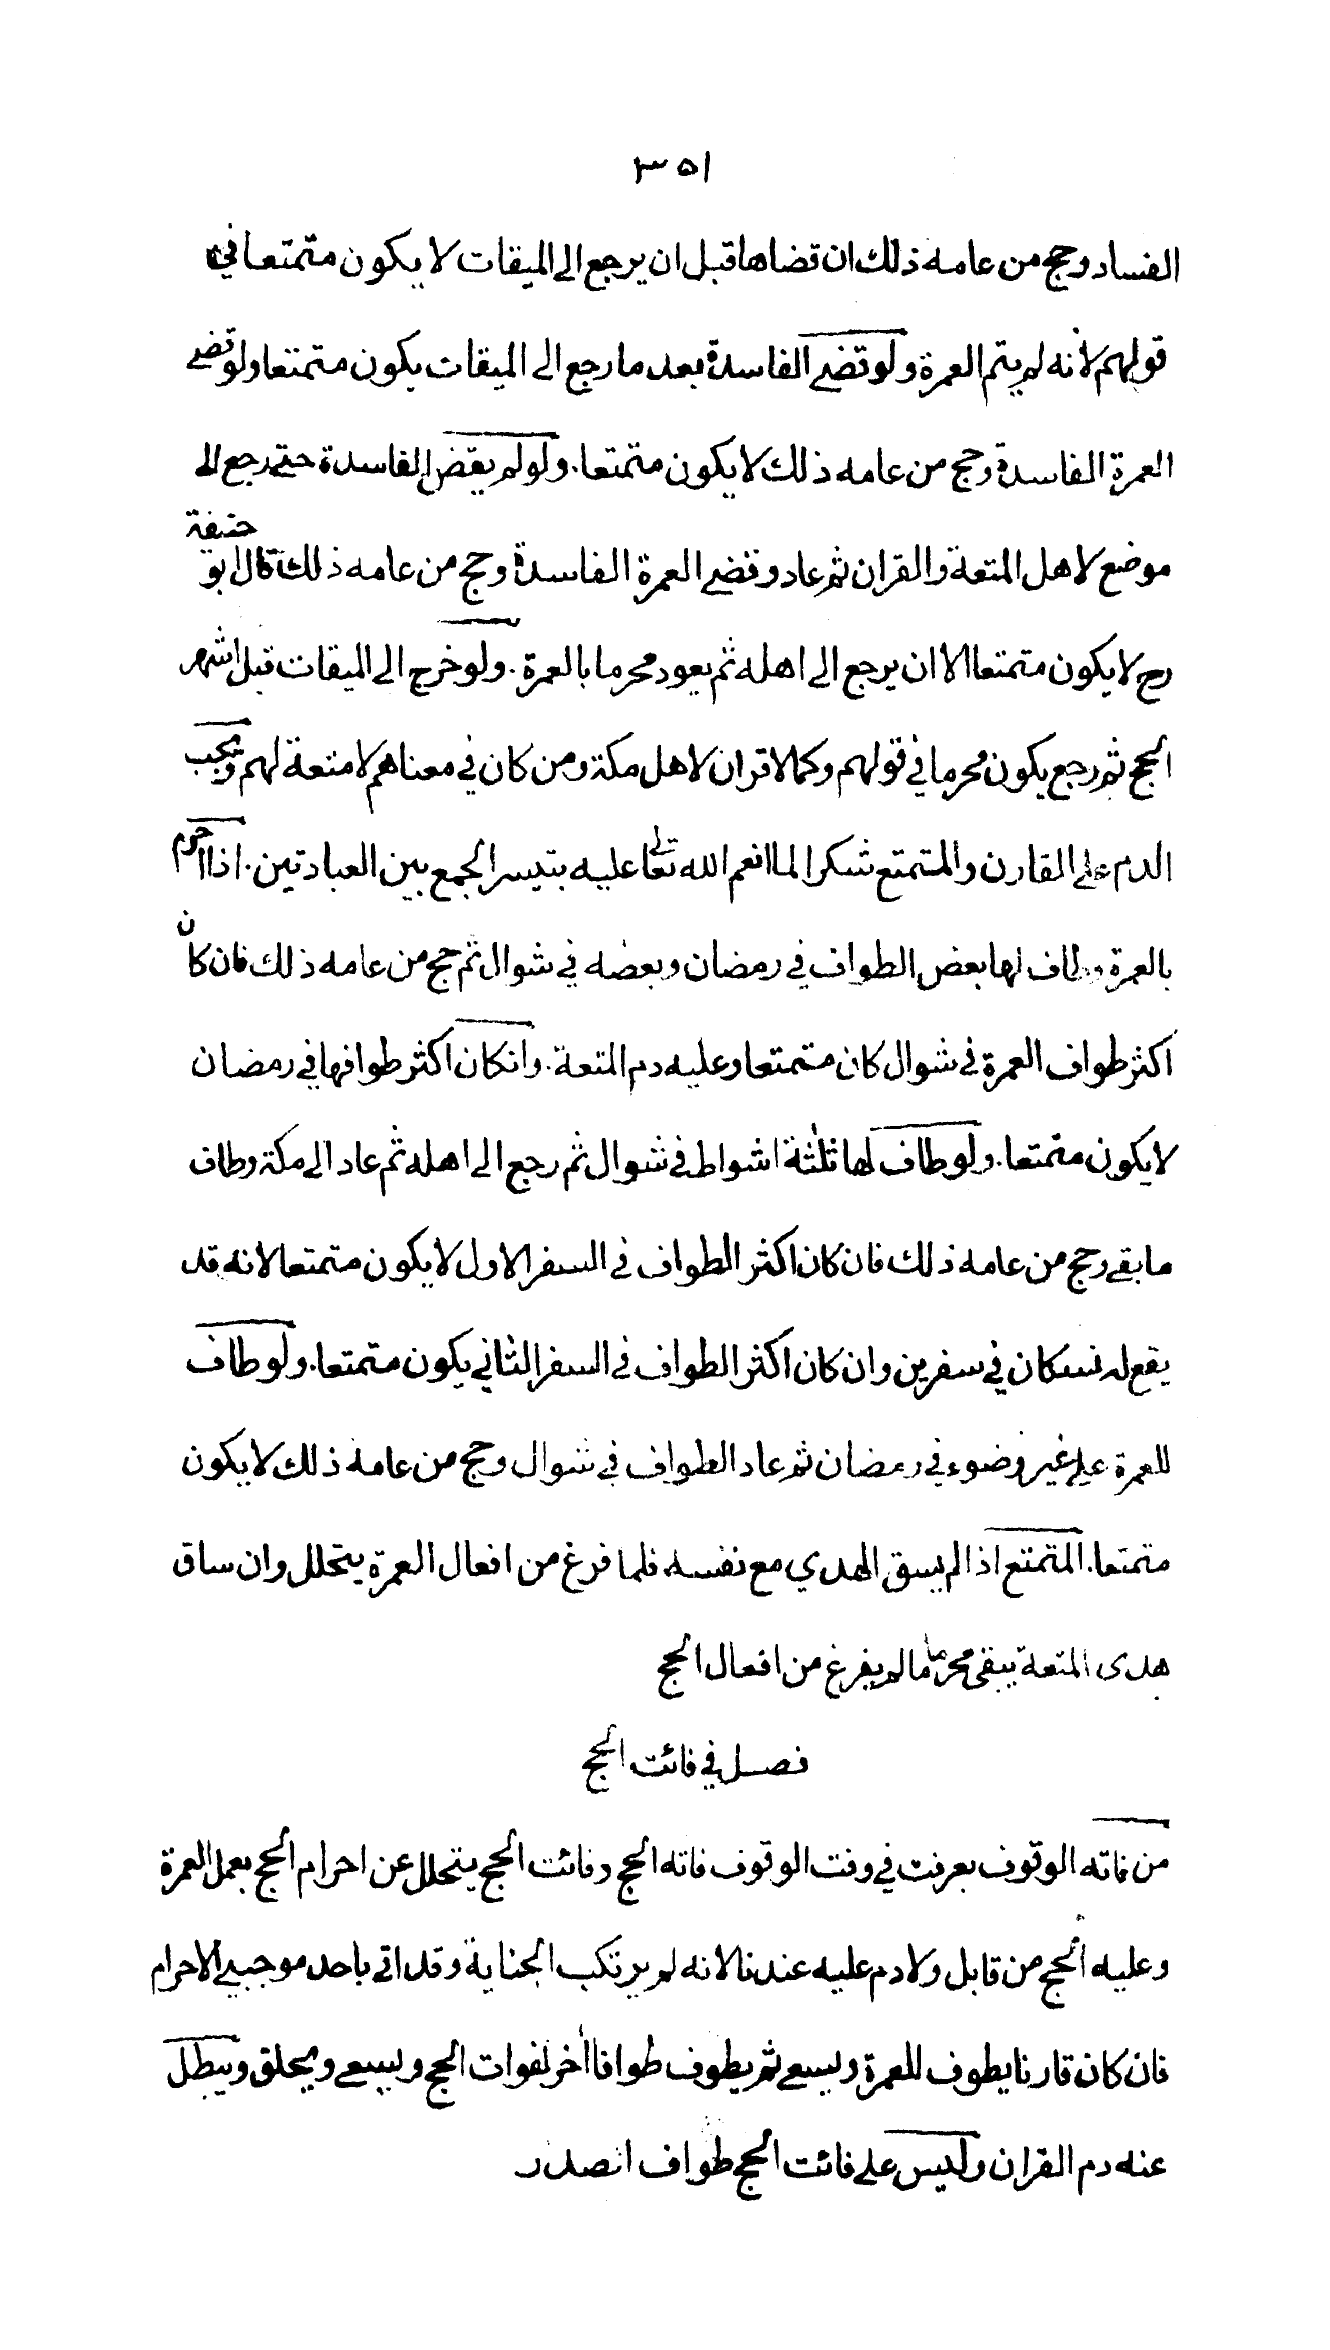 ٣٥١
الفساد وحج من عامه ذلك ان قضاها قبل ان يرجع الى الميقات لا يكون متمتعا في
قولهم لانه لم يتم العمرة ولو قضى الفاسدة بعد ما رجع الى الميقات يكون متمتعا ولو قضى
العمرة الفاسدة وحج من عامه ذلك لا يكون متمتعا. ولو لم يقض الفاسدة حتى رجع الى
موضع لاهل المتعة والقران ثم عاد وقضى العمرة الفاسدة وحج من عامه ذلك قال ابو حنيفة
رح لا يكون متمتعا الا ان يرجع الى اهله ثم يعود محرما بالعمرة. ولو خرج الى الميقات قبل اشهر
الحج ثم رجع يكون محرما في قولهم وكما لا قران لاهل مكة ومن كان في معناهم لا متعة لهم ويجب
الدم على القارن والمتمتع شكرا لما انعم الله تعالى عليه بتيسر الجمع بين العبادتين. اذا احرم
بالعمرة وطاف لها بعض الطواف في رمضان وبعضه في شوال ثم حج من عامه ذلك فان كان
اكثر طواف العمرة في شوال كان متمتعا وعليه دم المتعة. وانكان اكثر طوافها في رمضان
لا يكون متمتعا. ولو طاف لها ثلثة اشواط في شوال ثم رجع الى اهله ثم عاد الى مكة وطاف
ما بقي وحج من عامه ذلك فان كان اكثر الطواف في السفر الاول لا يكون متمتعا لانه قد
يقع له نسكان في سفرين وان كان اكثر الطواف في السفر الثاني يكون متمتعا. ولو طاف
للعمرة على غير وضوء في رمضان ثم عاد الطواف في شوال وحج من عامه ذلك لا يكون
متمتعا. المتمتع اذا لم يسق الهدي مع نفسه فلما فرغ من افعال العمرة يتحلل وان ساق
هدى المتعة يبقى محرما ما لم يفرغ من افعال الحج
فصل في فائت الحج
من فاته الوقوف بعرفت في وقت الوقوف فاته الحج وفائت الحج يتحلل عن احرام الحج بعمل العمرة
وعليه الحج من قابل ولا دم عليه عندنا لانه لم يرتكب الجناية وقد اتى باحد موجبي الاحرام
فان كان قارنا يطوف للعمرة ويسعى ثم يطوف طوافا اخر لفوات الحج ويسعى ويحلق ويبطل
عنه دم القران وليس على فائت الحج طواف الصدر